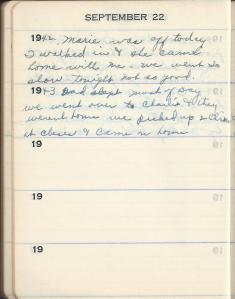 SEPTEMBER 22
1942. Marie was off today
I walked in & she came
home with me - we went to
show tonight not so good.
1943 Dad slept most of day
we went over to Charlie & they
weren't home we picked up
at closes & came in home
19
19